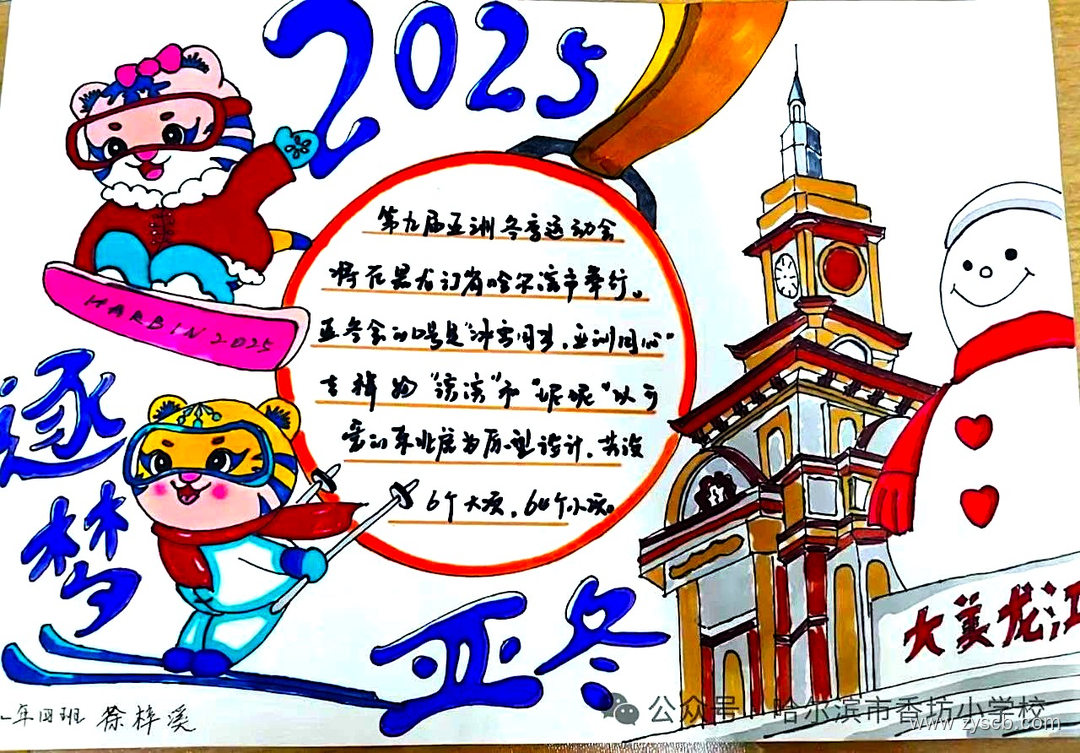 2025
HARBIN 2025
第九届亚洲冬季运动会
将在黑龙江省哈尔滨市举行。
亚冬会的口号是"冰雪同梦，亚洲同心"
吉祥物"滨滨"和"妮妮"以可
爱的东北虎为原型设计，共设
6个大项，64个小项。
逐梦
亚冬
大美龙江
一年四班 徐梓溪
公众号 哈尔滨市香坊小学校
www.zyscb.com